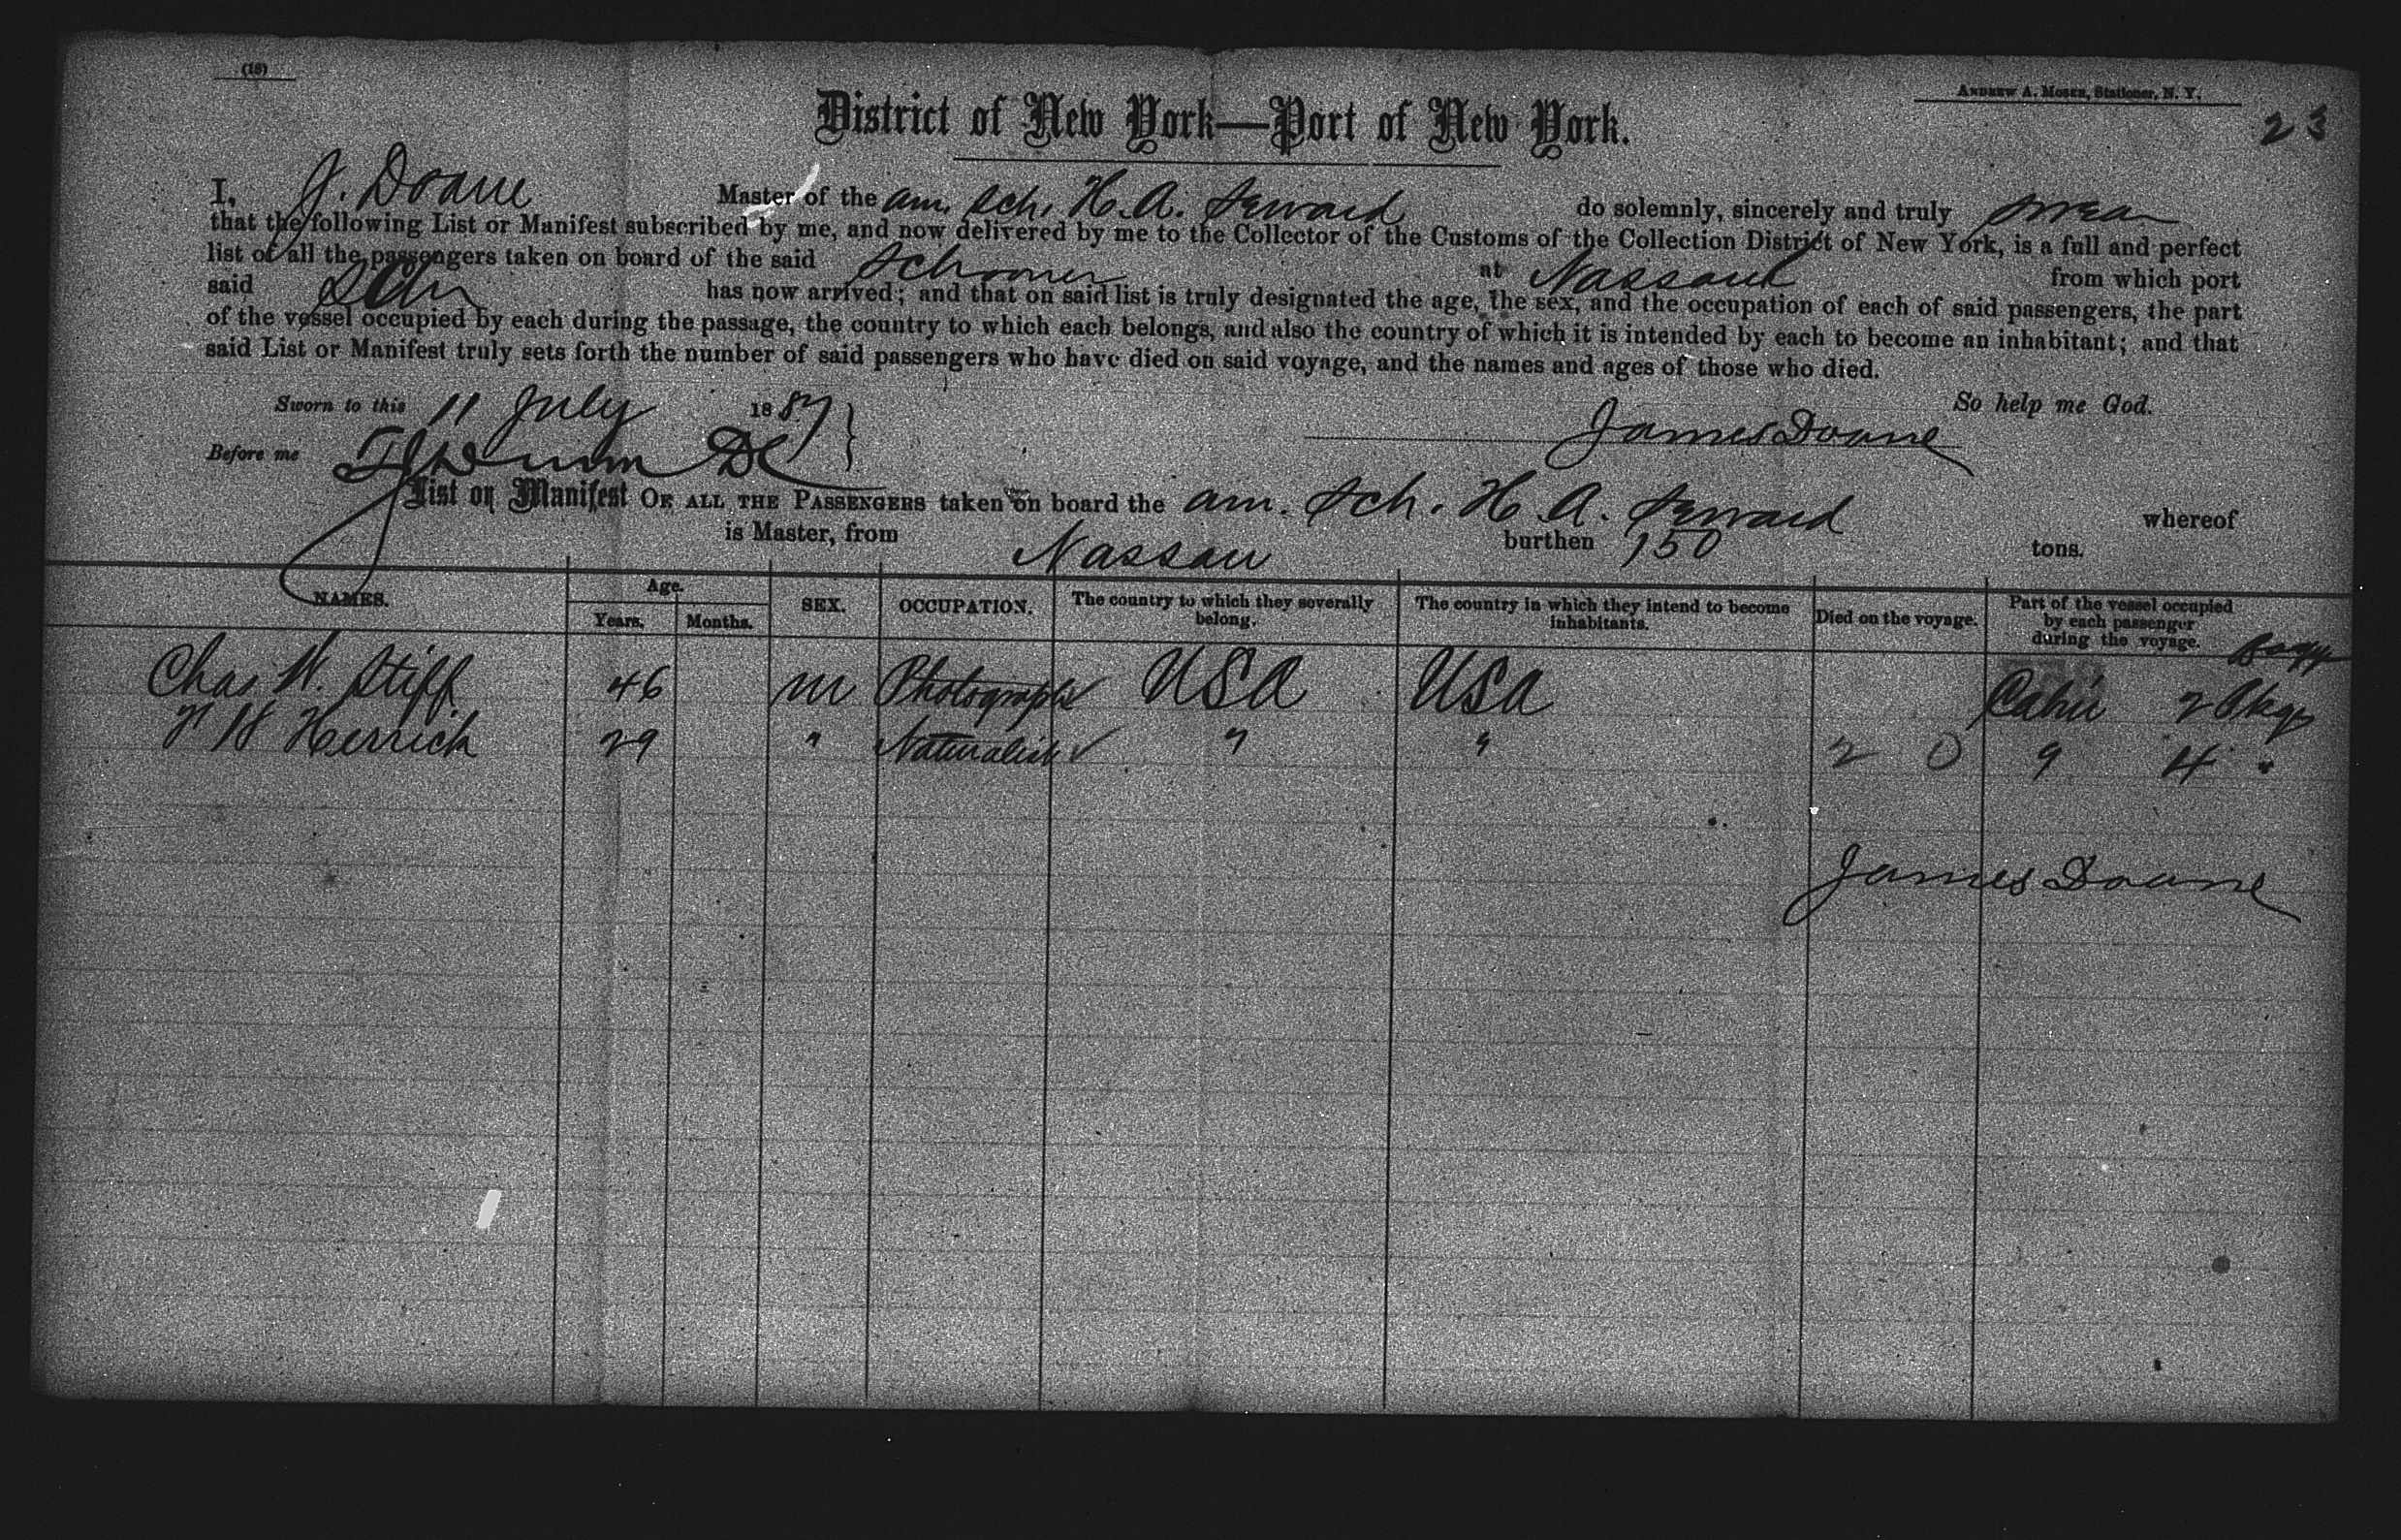 (18)
Andrew A. Moser, Stationer, N. Y.
23
District of New York—Port of New York.
I, J. Doane Master of the am. sch. H. A. Seward do solemnly, sincerely and truly swear
that the following List or Manifest subscribed by me, and now delivered by me to the Collector of the Customs of the Collection District of New York, is a full and perfect
list of all the passengers taken on board of the said Schooner at Nassau from which port
said Schr has now arrived; and that on said list is truly designated the age, the sex, and the occupation of each of said passengers, the part
of the vessel occupied by each during the passage, the country to which each belongs, and also the country of which it is intended by each to become an inhabitant; and that
said List or Manifest truly sets forth the number of said passengers who have died on said voyage, and the names and ages of those who died.
Sworn to this 11 July 1887 So help me God.
Before me James Doane
List or Manifest OF ALL THE PASSENGERS taken on board the am. sch. H. A. Seward whereof
is Master, from Nassau burthen 150 tons.
NAMES. Age. Years. Months. SEX. OCCUPATION. The country to which they severally belong. The country in which they intend to become inhabitants. Died on the voyage. Part of the vessel occupied by each passenger during the voyage. Bagg
Chas W. Stiff 46 m Photograph USA USA Cabin 2 Pkgs
F H Herrick 29 " Naturalist " " 2 0 " 4 "
James Doane